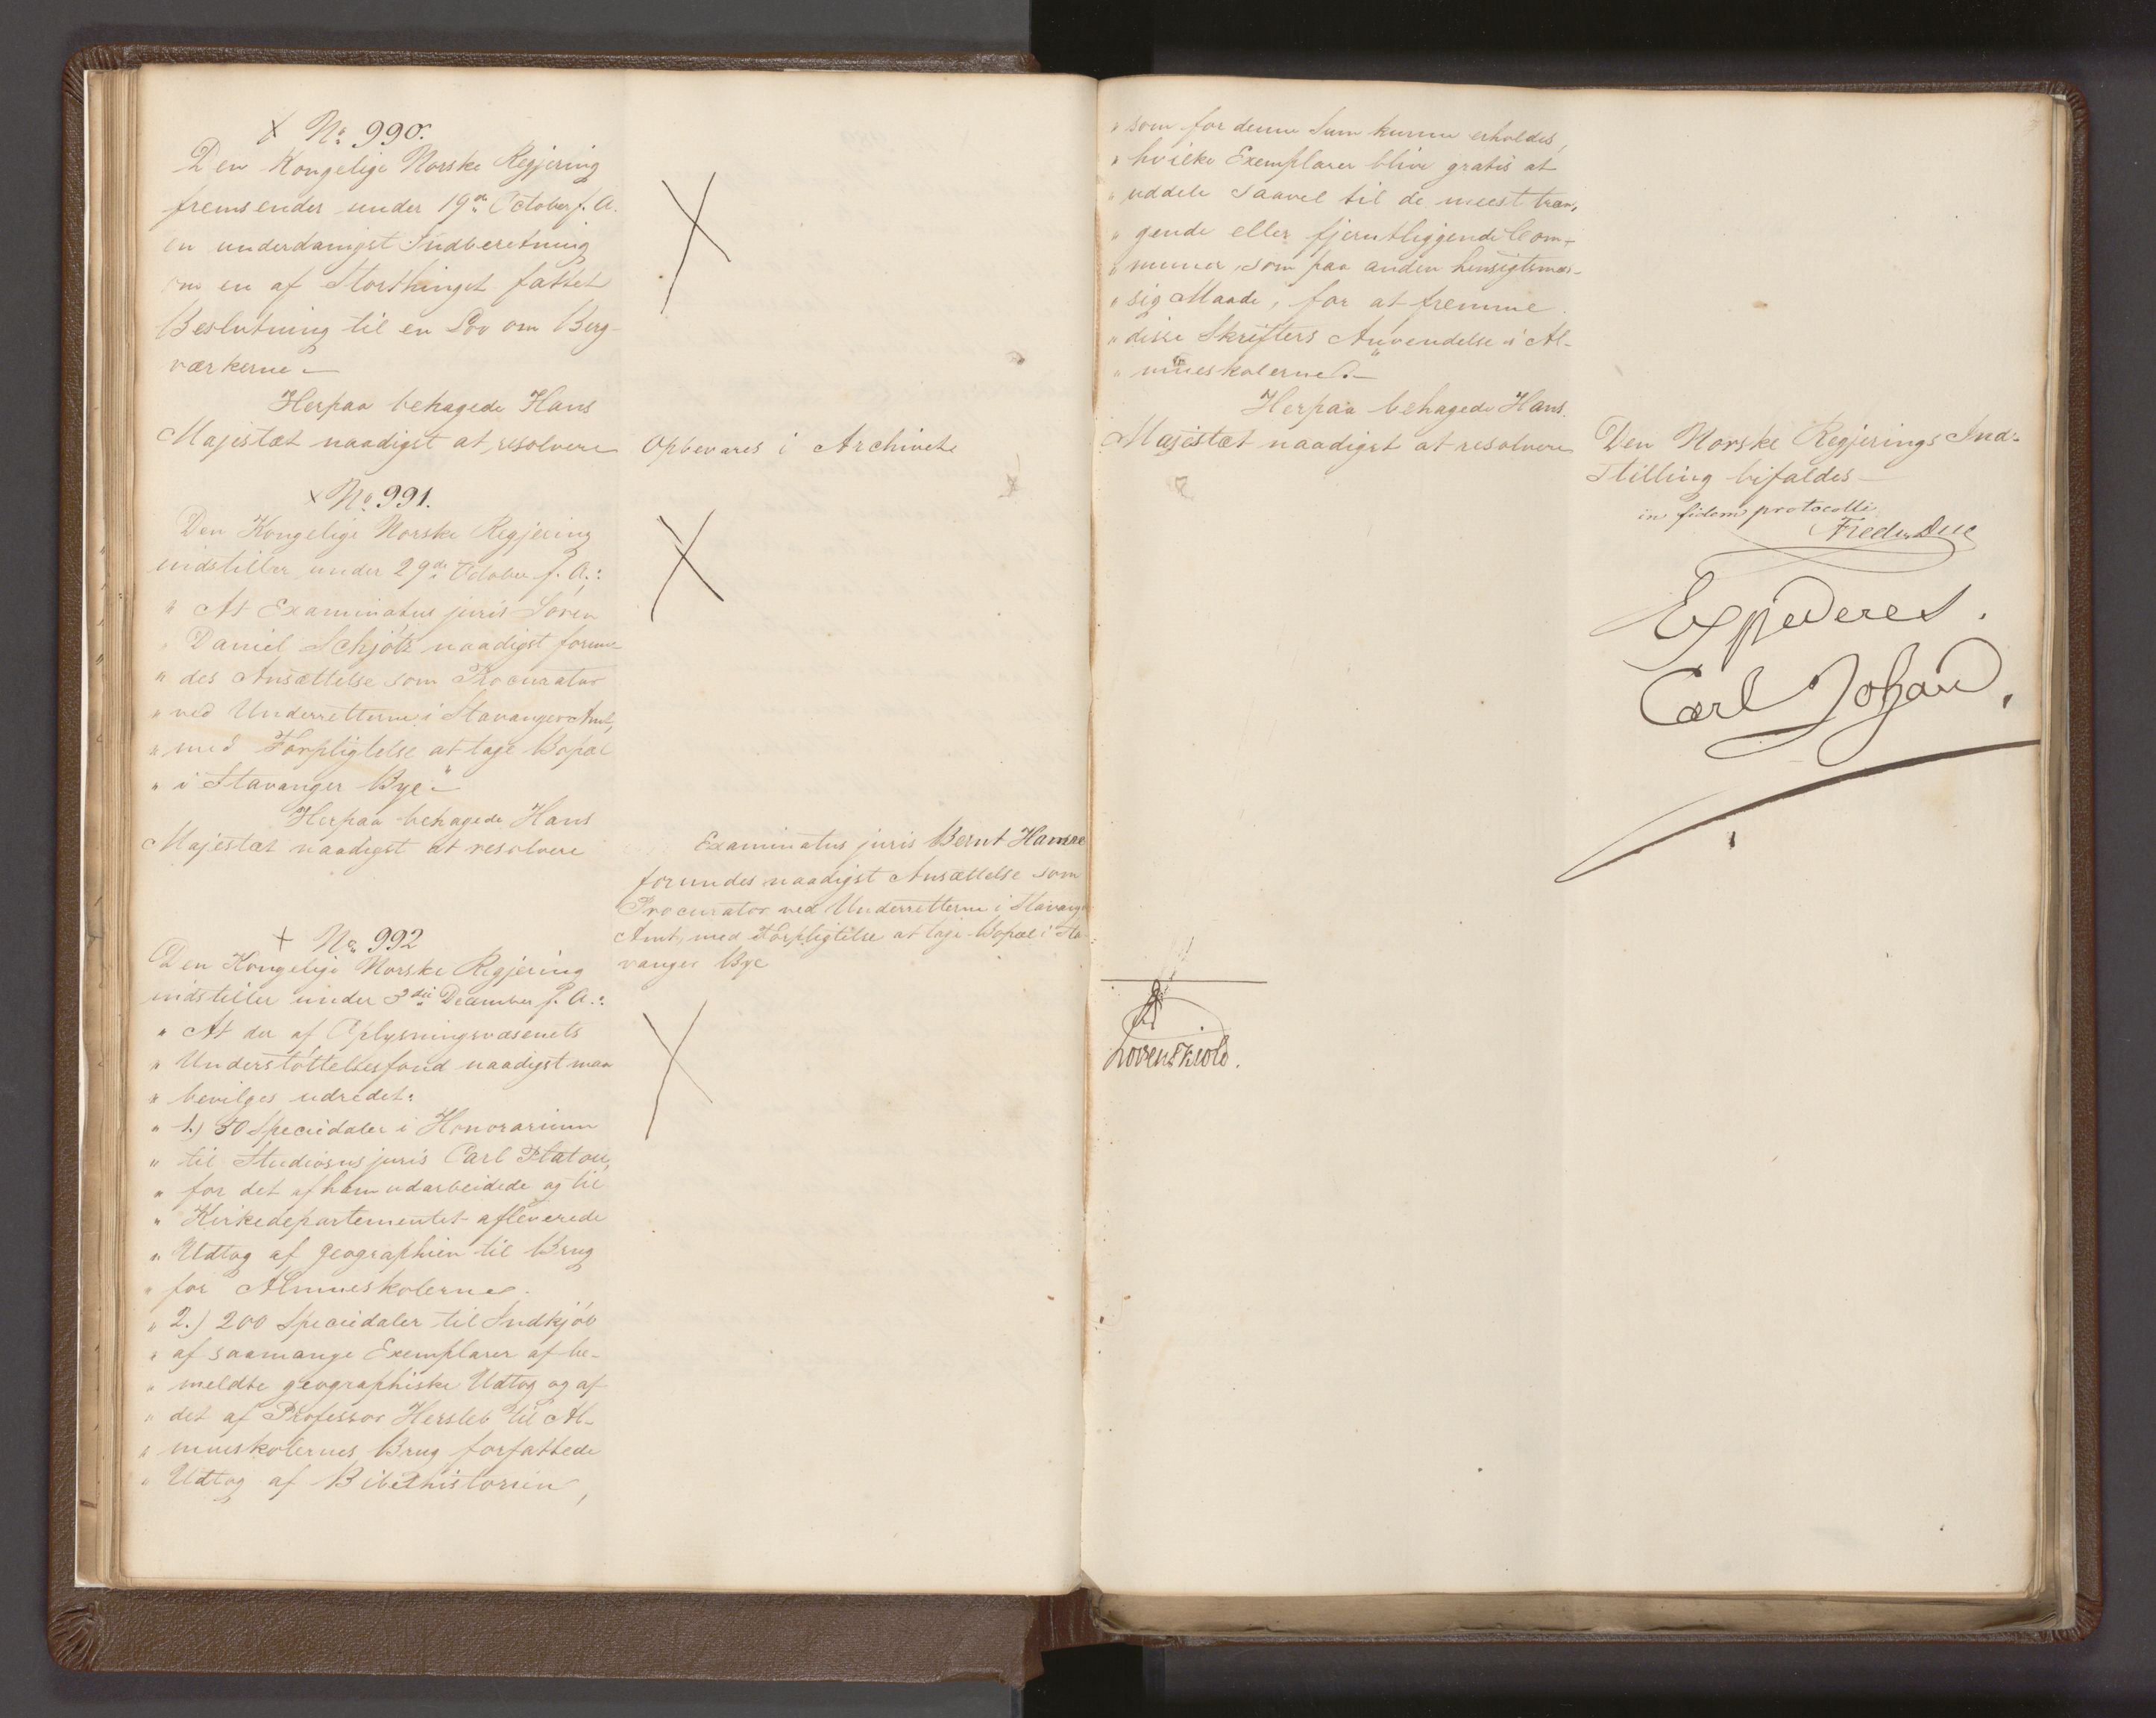 No 990.
Den Kongelige Norske Regjering
fremsender under 19de October f. A.
en underdanigst Indberetning
om en af Storthinget fattet
Beslutning til en Lov om Berg-
værkerne.-
Herpaa behagede Hans
Majestæt naadigst at resolvere
Opbevares i Archivet.
No 991.
Den Kongelige Norske Regjering
indstiller under 29de October f. A.:
" At Examinatus juris Sören
" Daniel Schjötz naadigst forun-
" des Ansættelse som Procurator
" ved Underretterne i Stavanger Amt,
" med Forpligtelse at tage Bopæl
" i Stavanger Bye."-
Herpaa behagede Hans
Majestæt naadigst at resolvere
Examinatus juris Bernt Hamre
forundes naadigst Ansættelse som
Procurator ved Underretterne i Stavanger
Amt, med Forpligtelse at tage Bopæl i Sta-
vanger Bye
No 992
Den Kongelige Norske Regjering
indstiller under 3die December f. A.:
" At der af Oplysningsvæsenets
" Understöttelsesfond naadigst maa
" bevilges udredet:
" 1.) 50 Speciedaler i Honorarium
" til Studiosus juris Carl Platou,
" for det af ham udarbeidede og til
" Kirkedepartementet afleverede
" Udtog af Geographien til Brug
" for Almueskolerne.
" 2.) 200 Speciedaler til Indkjöb
" af saamange Exemplarer af be-
" meldte geographiske Udtog og af
" det af Professor Hersleb til Al-
" mueskolernes Brug forfattede
" Udtog af Bibelhistorien,
" som for denne Sum kunne erholdes,
" hvilke Exemplarer blive gratis at
" uddele saavel til de meest træn-
" gende eller fjerntliggende Com-
" muner, som paa anden hensigtsmæs-
" sig Maade, for at fremme
" disse Skrifters Anvendelse i Al-
" mueskolerne."-
Herpaa behagede Hans
Majestæt naadigst at resolvere
Den Norske Regjerings Ind-
stilling bifaldes-
in fidem protocolli
Fredr. Due
Expederes.
Carl Johan.
Lövenskiold.